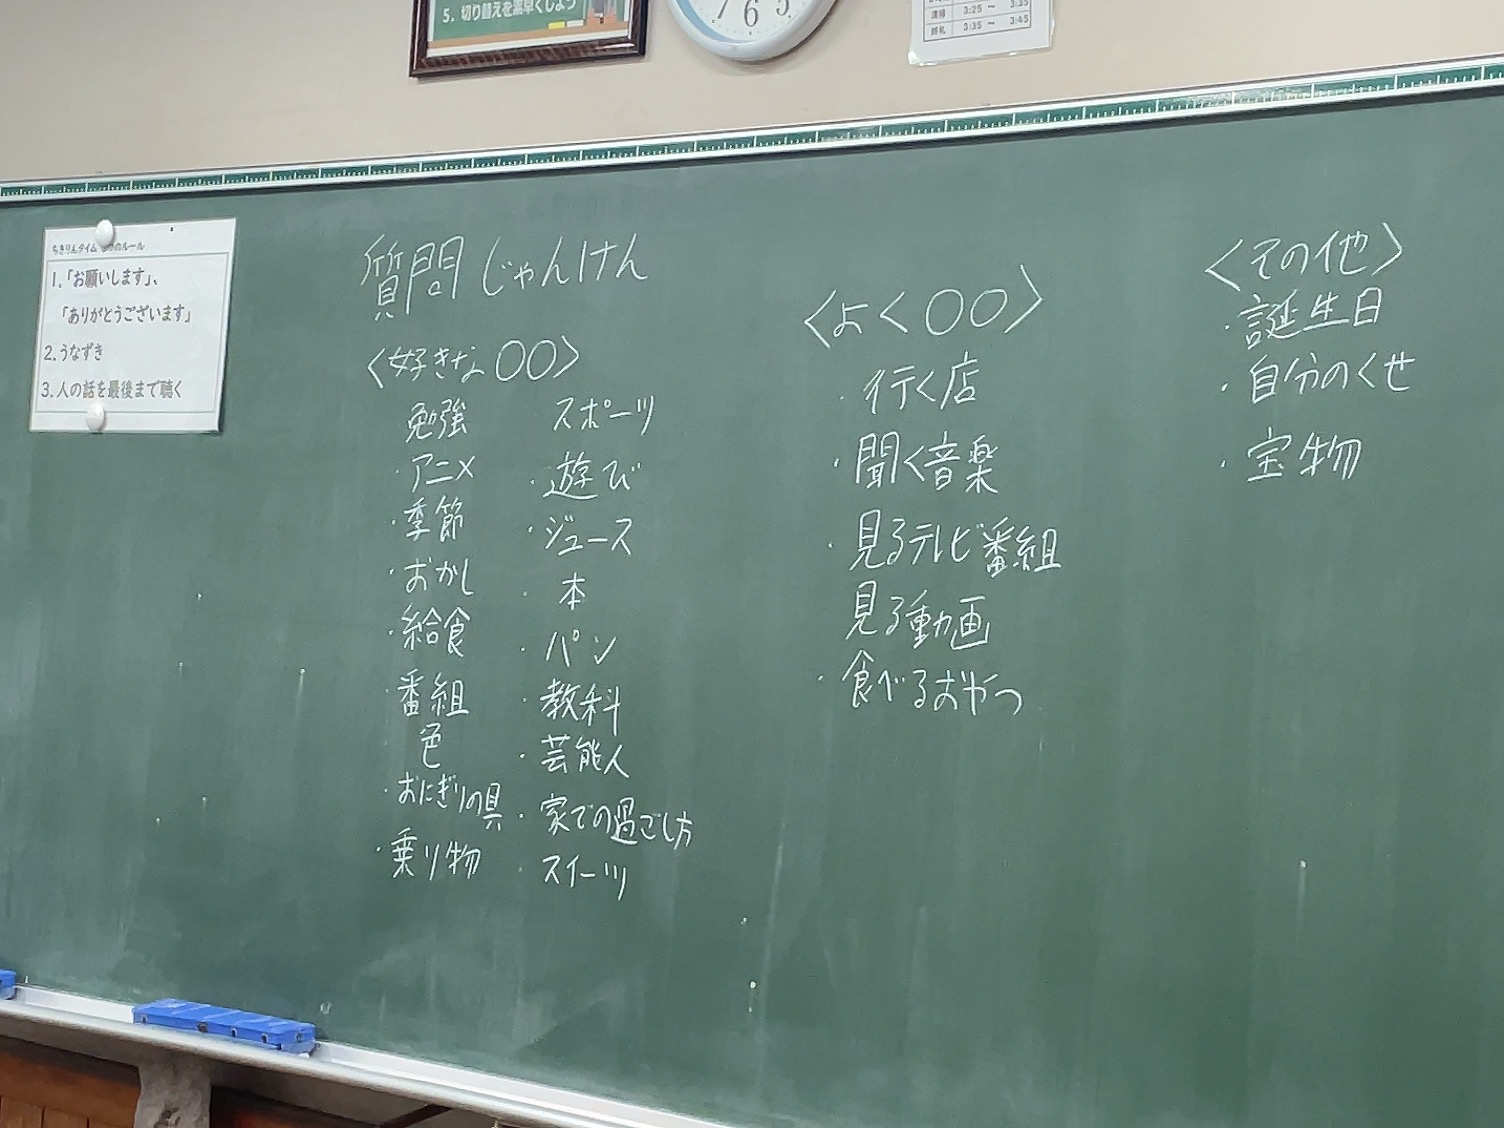 5. 切り替えを素早くしよう
7 6 5
清掃 3:25 ～ 3:35
終礼 3:35 ～ 3:45
ちきりんタイム のルール
1.「お願いします」、
「ありがとうございます」
2.うなずき
3.人の話を最後まで聴く
質問じゃんけん
〈好きな〇〇〉
勉強
・アニメ
・季節
・おかし
・給食
・番組
色
・おにぎりの具
・乗り物
スポーツ
・遊び
・ジュース
・本
・パン
・教科
・芸能人
・家での過ごし方
・スイーツ
〈よく〇〇〉
・行く店
・聞く音楽
・見るテレビ番組
見る動画
・食べるおやつ
〈その他〉
・誕生日
・自分のくせ
・宝物